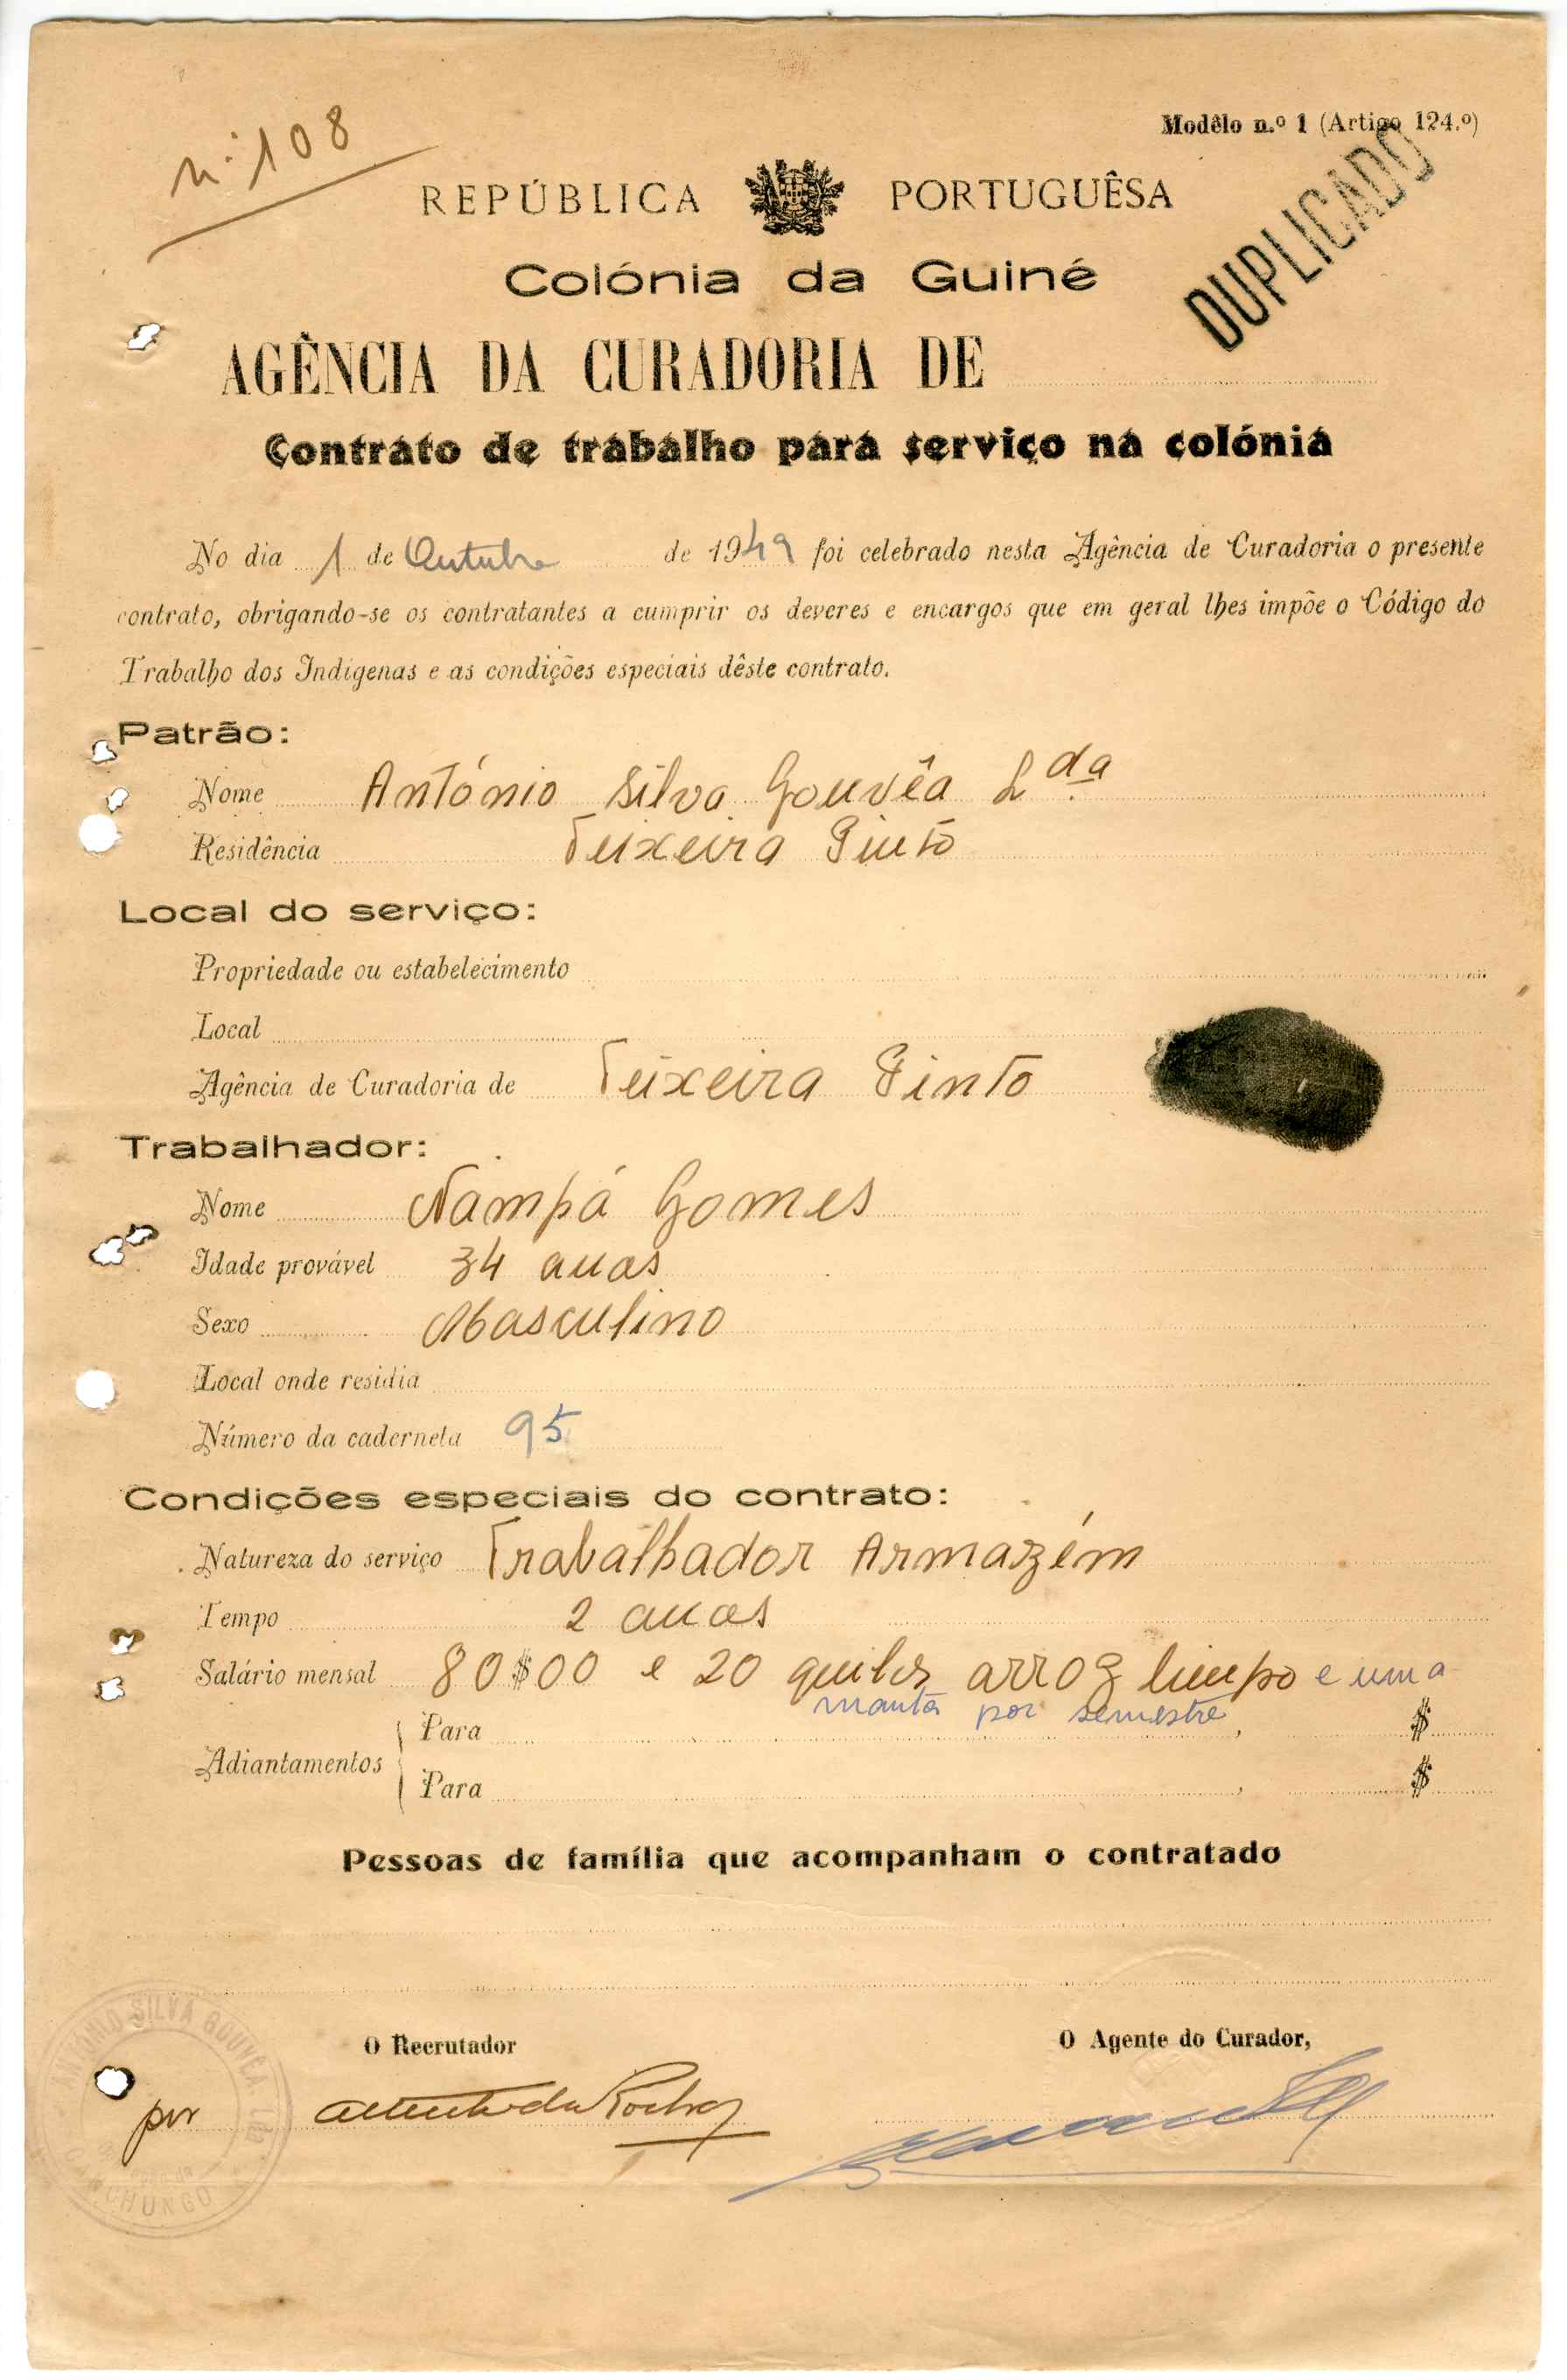 n.º 108
Modêlo n.º 1 (Artigo 124.º)
REPÚBLICA PORTUGUÊSA
DUPLICADO
Colónia da Guiné
AGÊNCIA DA CURADORIA DE
Contrato de trabalho para serviço na colónia
No dia 1 de Outubro de 1949 foi celebrado nesta Agência de Curadoria o presente
contrato, obrigando-se os contratantes a cumprir os deveres e encargos que em geral lhes impõe o Código do
Trabalho dos Indígenas e as condições especiais dêste contrato.
Patrão:
Nome António Silva Gouvêa Lda
Residência Teixeira Pinto
Local do serviço:
Propriedade ou estabelecimento
Local
Agência de Curadoria de Teixeira Pinto
Trabalhador:
Nome Nampá Gomes
Idade provável 34 anos
Sexo Masculino
Local onde residia
Número da caderneta 95
Condições especiais do contrato:
Natureza do serviço Trabalhador Armazém
Tempo 2 anos
Salário mensal 80$00 e 20 quilos arroz limpo e uma
manta por semestre
Adiantamentos
Para , $
Para , $
Pessoas de família que acompanham o contratado
O Recrutador
O Agente do Curador,
por
ANTÓNIO SILVA GOUVÊA, Lda